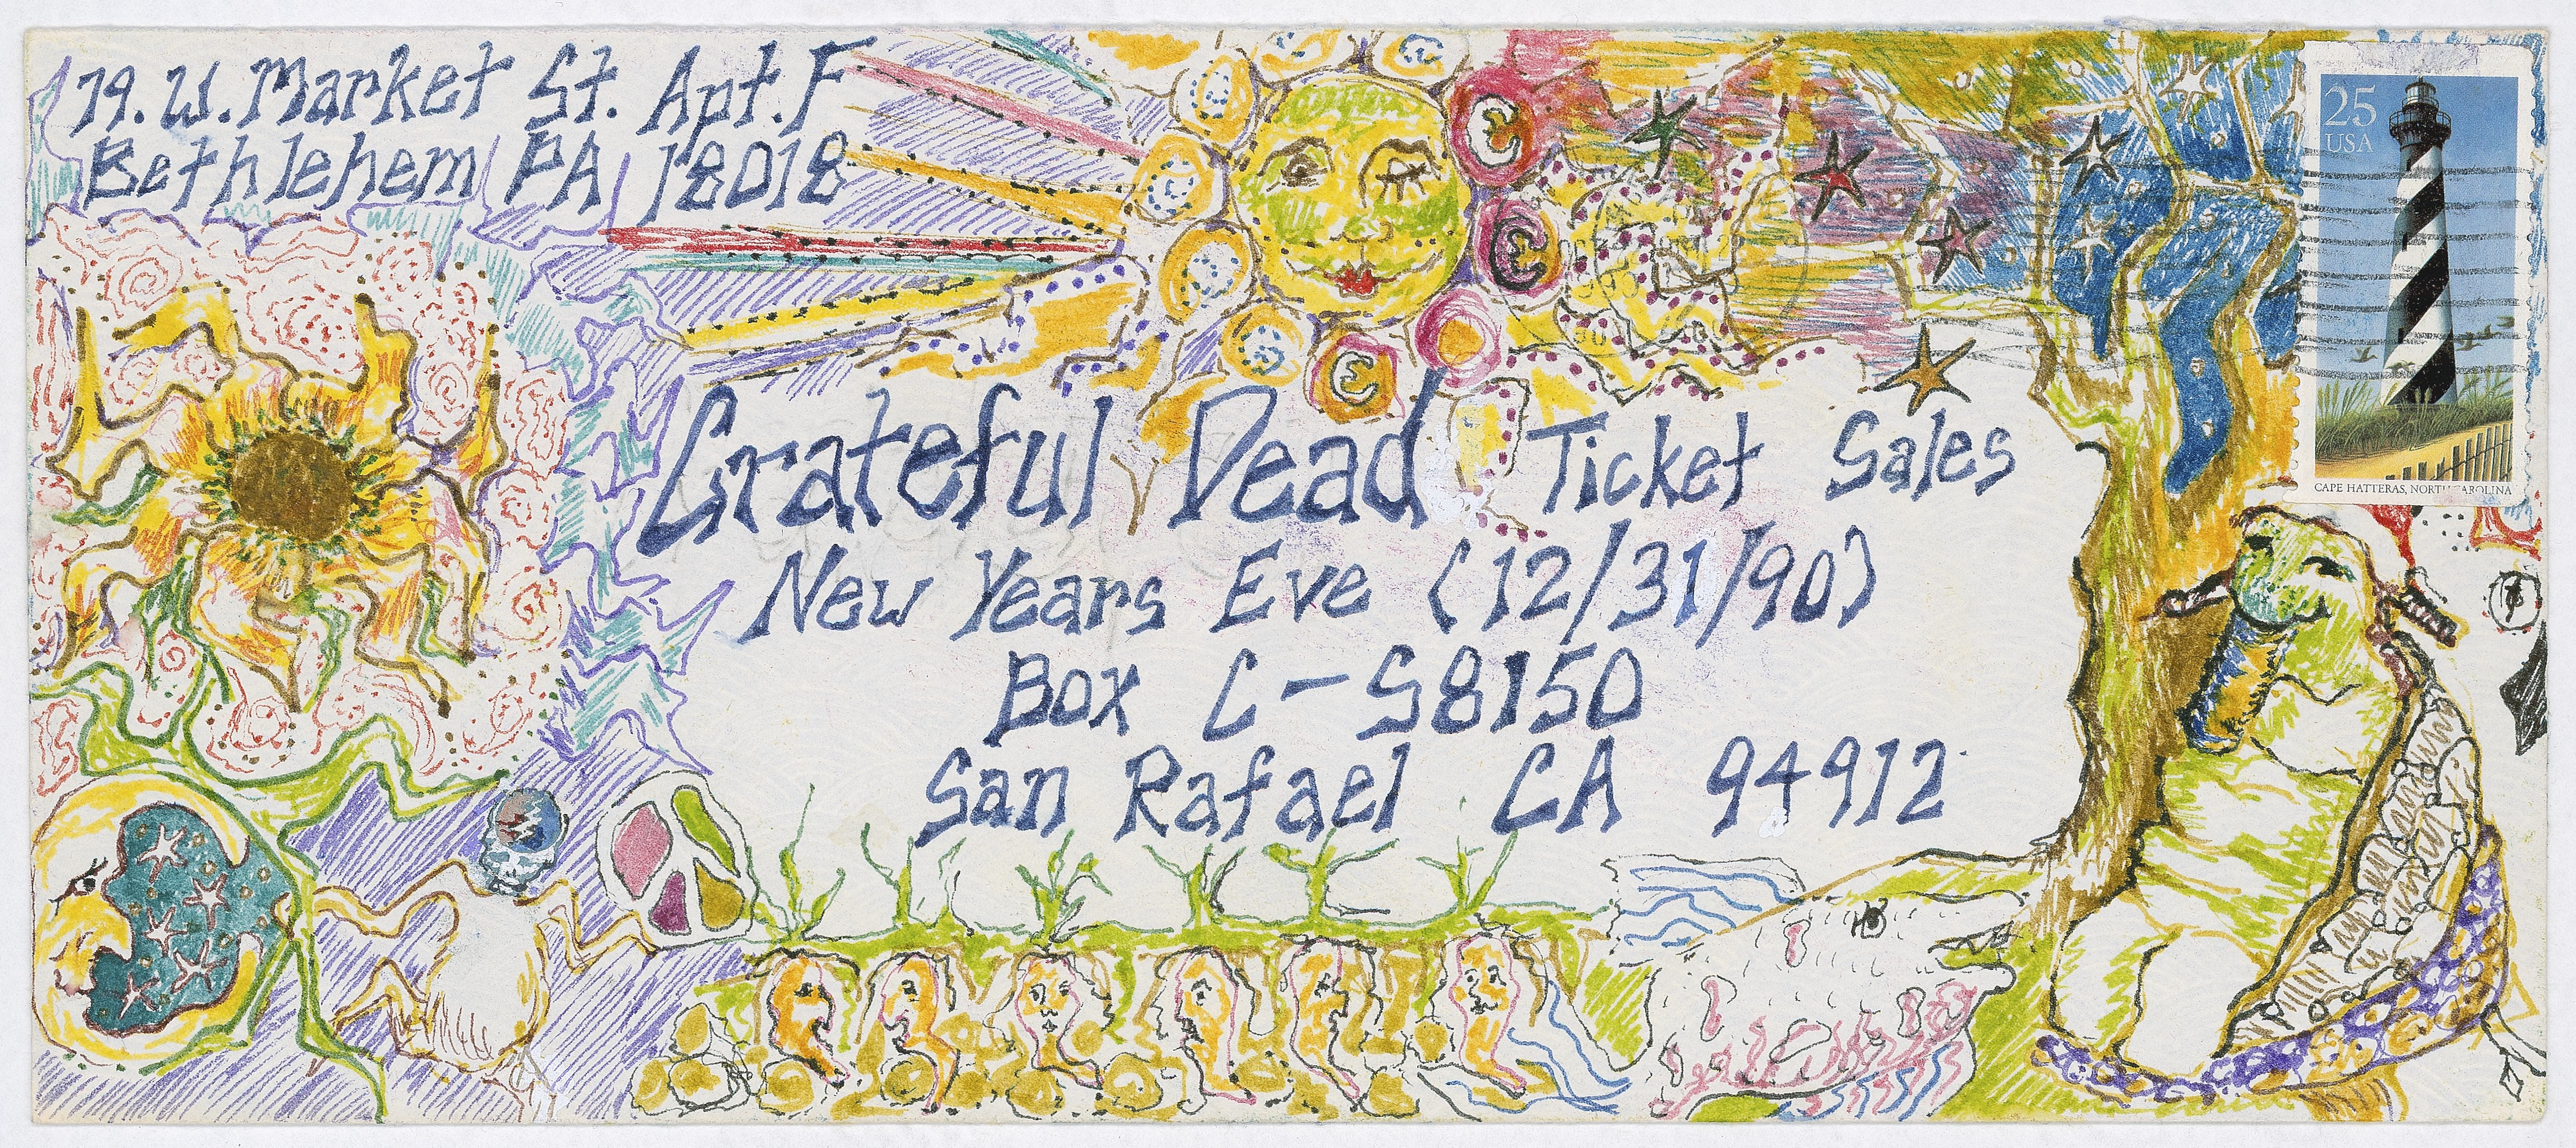 79. W. Market St. Apt. F
Bethlehem PA 18018
25
USA
CAPE HATTERAS, NORTH CAROLINA
Grateful Dead Ticket Sales
New Years Eve (12/31/90)
Box C-S8150
San Rafael CA 94912